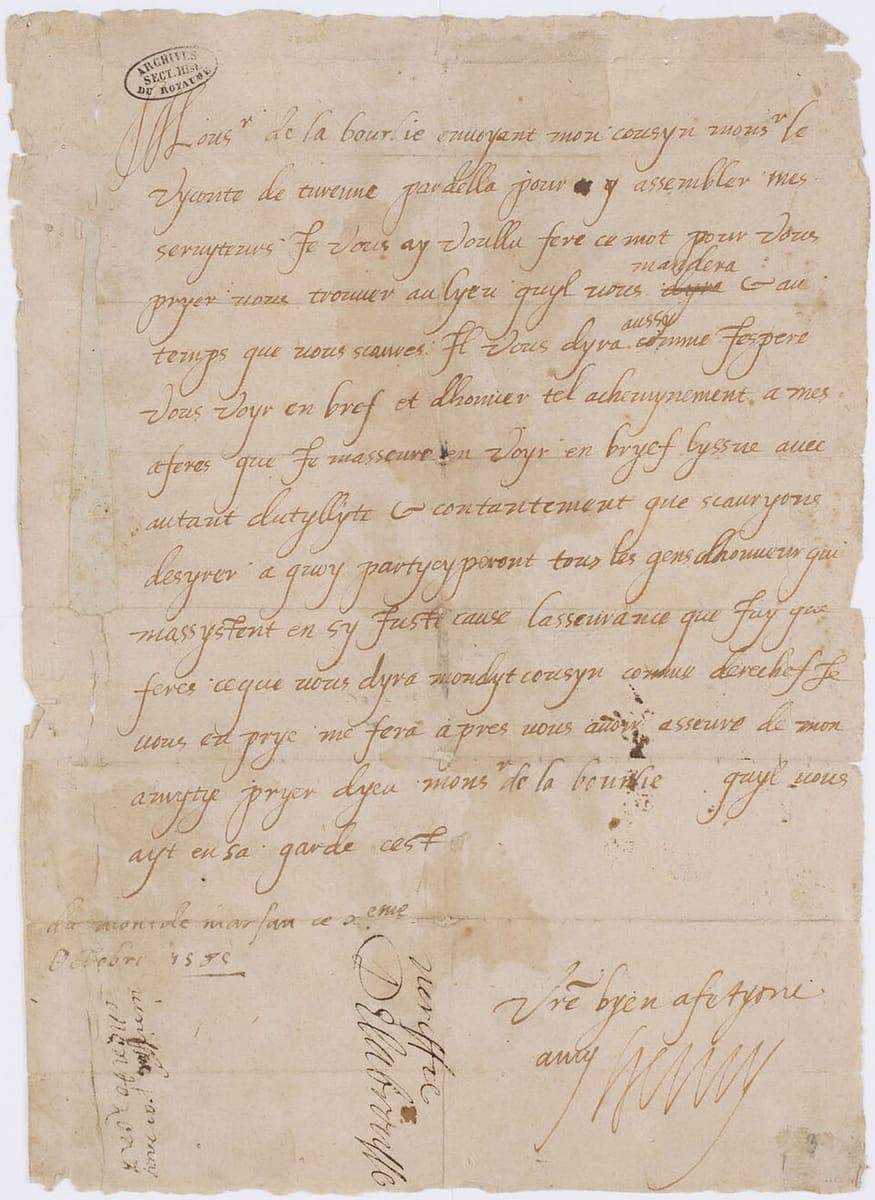 ARCHIVES
SECT. HIST.
DU ROYAUME
Monsr de la bourlie envoyant mon cousyn monsr le
vyconte de turenne par della pour y assembler mes
servyteurs Je vous ay voullu fere ce mot pour vous
mandera
pryer vous trouver au lyeu quyl vous dyra & au
aussy
temps que vous scaures. Il vous dyra comme Jespere
vous voyr en bref et dhonner tel achemynement a mes
aferes que Je masseure en voyr en bryef lyssue avec
autant dutyllyte & contantement que scauryons
desyrer a quoy partycyperont tous les gens dhonneur qui
massystent en sy Juste cause lasseurance que Jay que
feres ce que vous dyra mondyt cousyn comme derechef Je
vous en prye me fera apres vous avoyr asseure de mon
amytye pryer dyeu monsr de la bourlie quyl vous
ayt en sa garde cest
du mont de marsan ce xeme
Octobre
Vre byen afetyone
amy Henry
veriffie